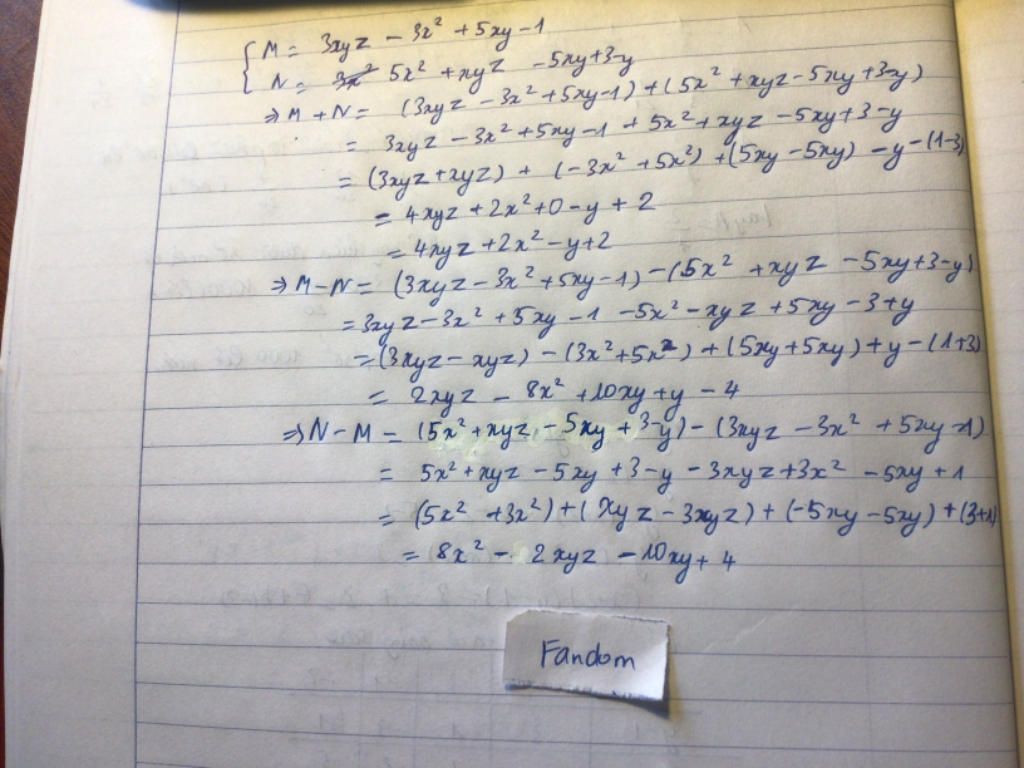 M = 3xyz - 3x² + 5xy - 1
N = 3x² 5x² + xyz - 5xy + 3 - y
⇒ M + N = (3xyz - 3x² + 5xy - 1) + (5x² + xyz - 5xy + 3 - y)
= 3xyz - 3x² + 5xy - 1 + 5x² + xyz - 5xy + 3 - y
= (3xyz + xyz) + (-3x² + 5x²) + (5xy - 5xy) - y - (1 - 3)
= 4xyz + 2x² + 0 - y + 2
= 4xyz + 2x² - y + 2
⇒ M - N = (3xyz - 3x² + 5xy - 1) - (5x² + xyz - 5xy + 3 - y)
= 3xyz - 3x² + 5xy - 1 - 5x² - xyz + 5xy - 3 + y
= (3xyz - xyz) - (3x² + 5x²) + (5xy + 5xy) + y - (1 + 3)
= 2xyz - 8x² + 10xy + y - 4
⇒ N - M = (5x² + xyz - 5xy + 3 - y) - (3xyz - 3x² + 5xy - 1)
= 5x² + xyz - 5xy + 3 - y - 3xyz + 3x² - 5xy + 1
= (5x² + 3x²) + (xyz - 3xyz) + (-5xy - 5xy) + (3 + 1)
= 8x² - 2xyz - 10xy + 4
Fandom